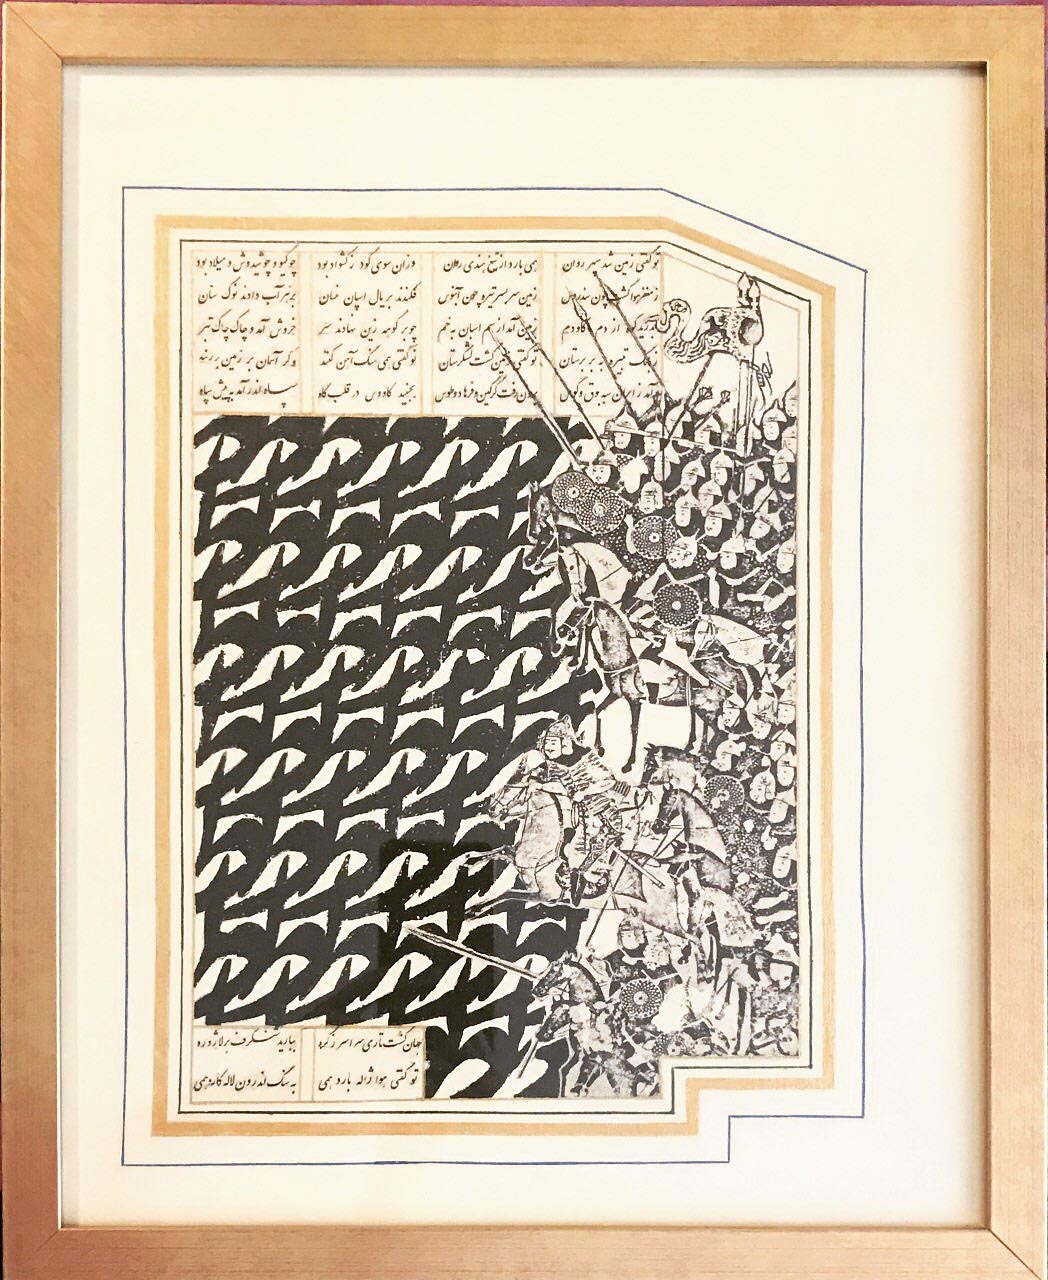 تو گفتی زمین شد سپهر روان همی بارد از تیغ هندی روان وزان سوی گودرز کشواد بود چو گیو و چو شیدوش و میلاد بود
ز مغفر هوا گشت چون سندروس زمین سربسر تیره چون آبنوس فکندند بر یال اسپان عنان بزهر آب دادند نوک سنان
از دم گاودم زمین آمد از سم اسپان به خم چو بر کوهه زین نهادند سر خروش آمد و چاک چاک تبر
ز بانگ تبیره به بربرستان تو گفتی زمین گشت لشکرستان تو گفتی همی سنگ آهن کند وگر آسمان بر زمین بر زند
برآمد ز ایران سپه بوق و کوس برون رفت گرگین و فرهاد و طوس بجنبید کاوس در قلب گاه سپاه اندر آمد به پیش سپاه
جهان گشت تاری سراسر ز گرد ببارید شنگرف بر لاژورد
تو گفتی هوا ژاله بارد همی به سنگ اندرون لاله کارد همی